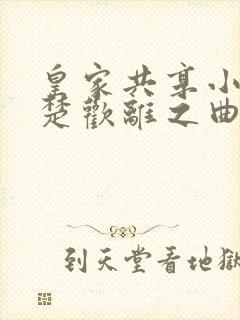 皇家共享小
楚歡離之曲
到天堂看地獄